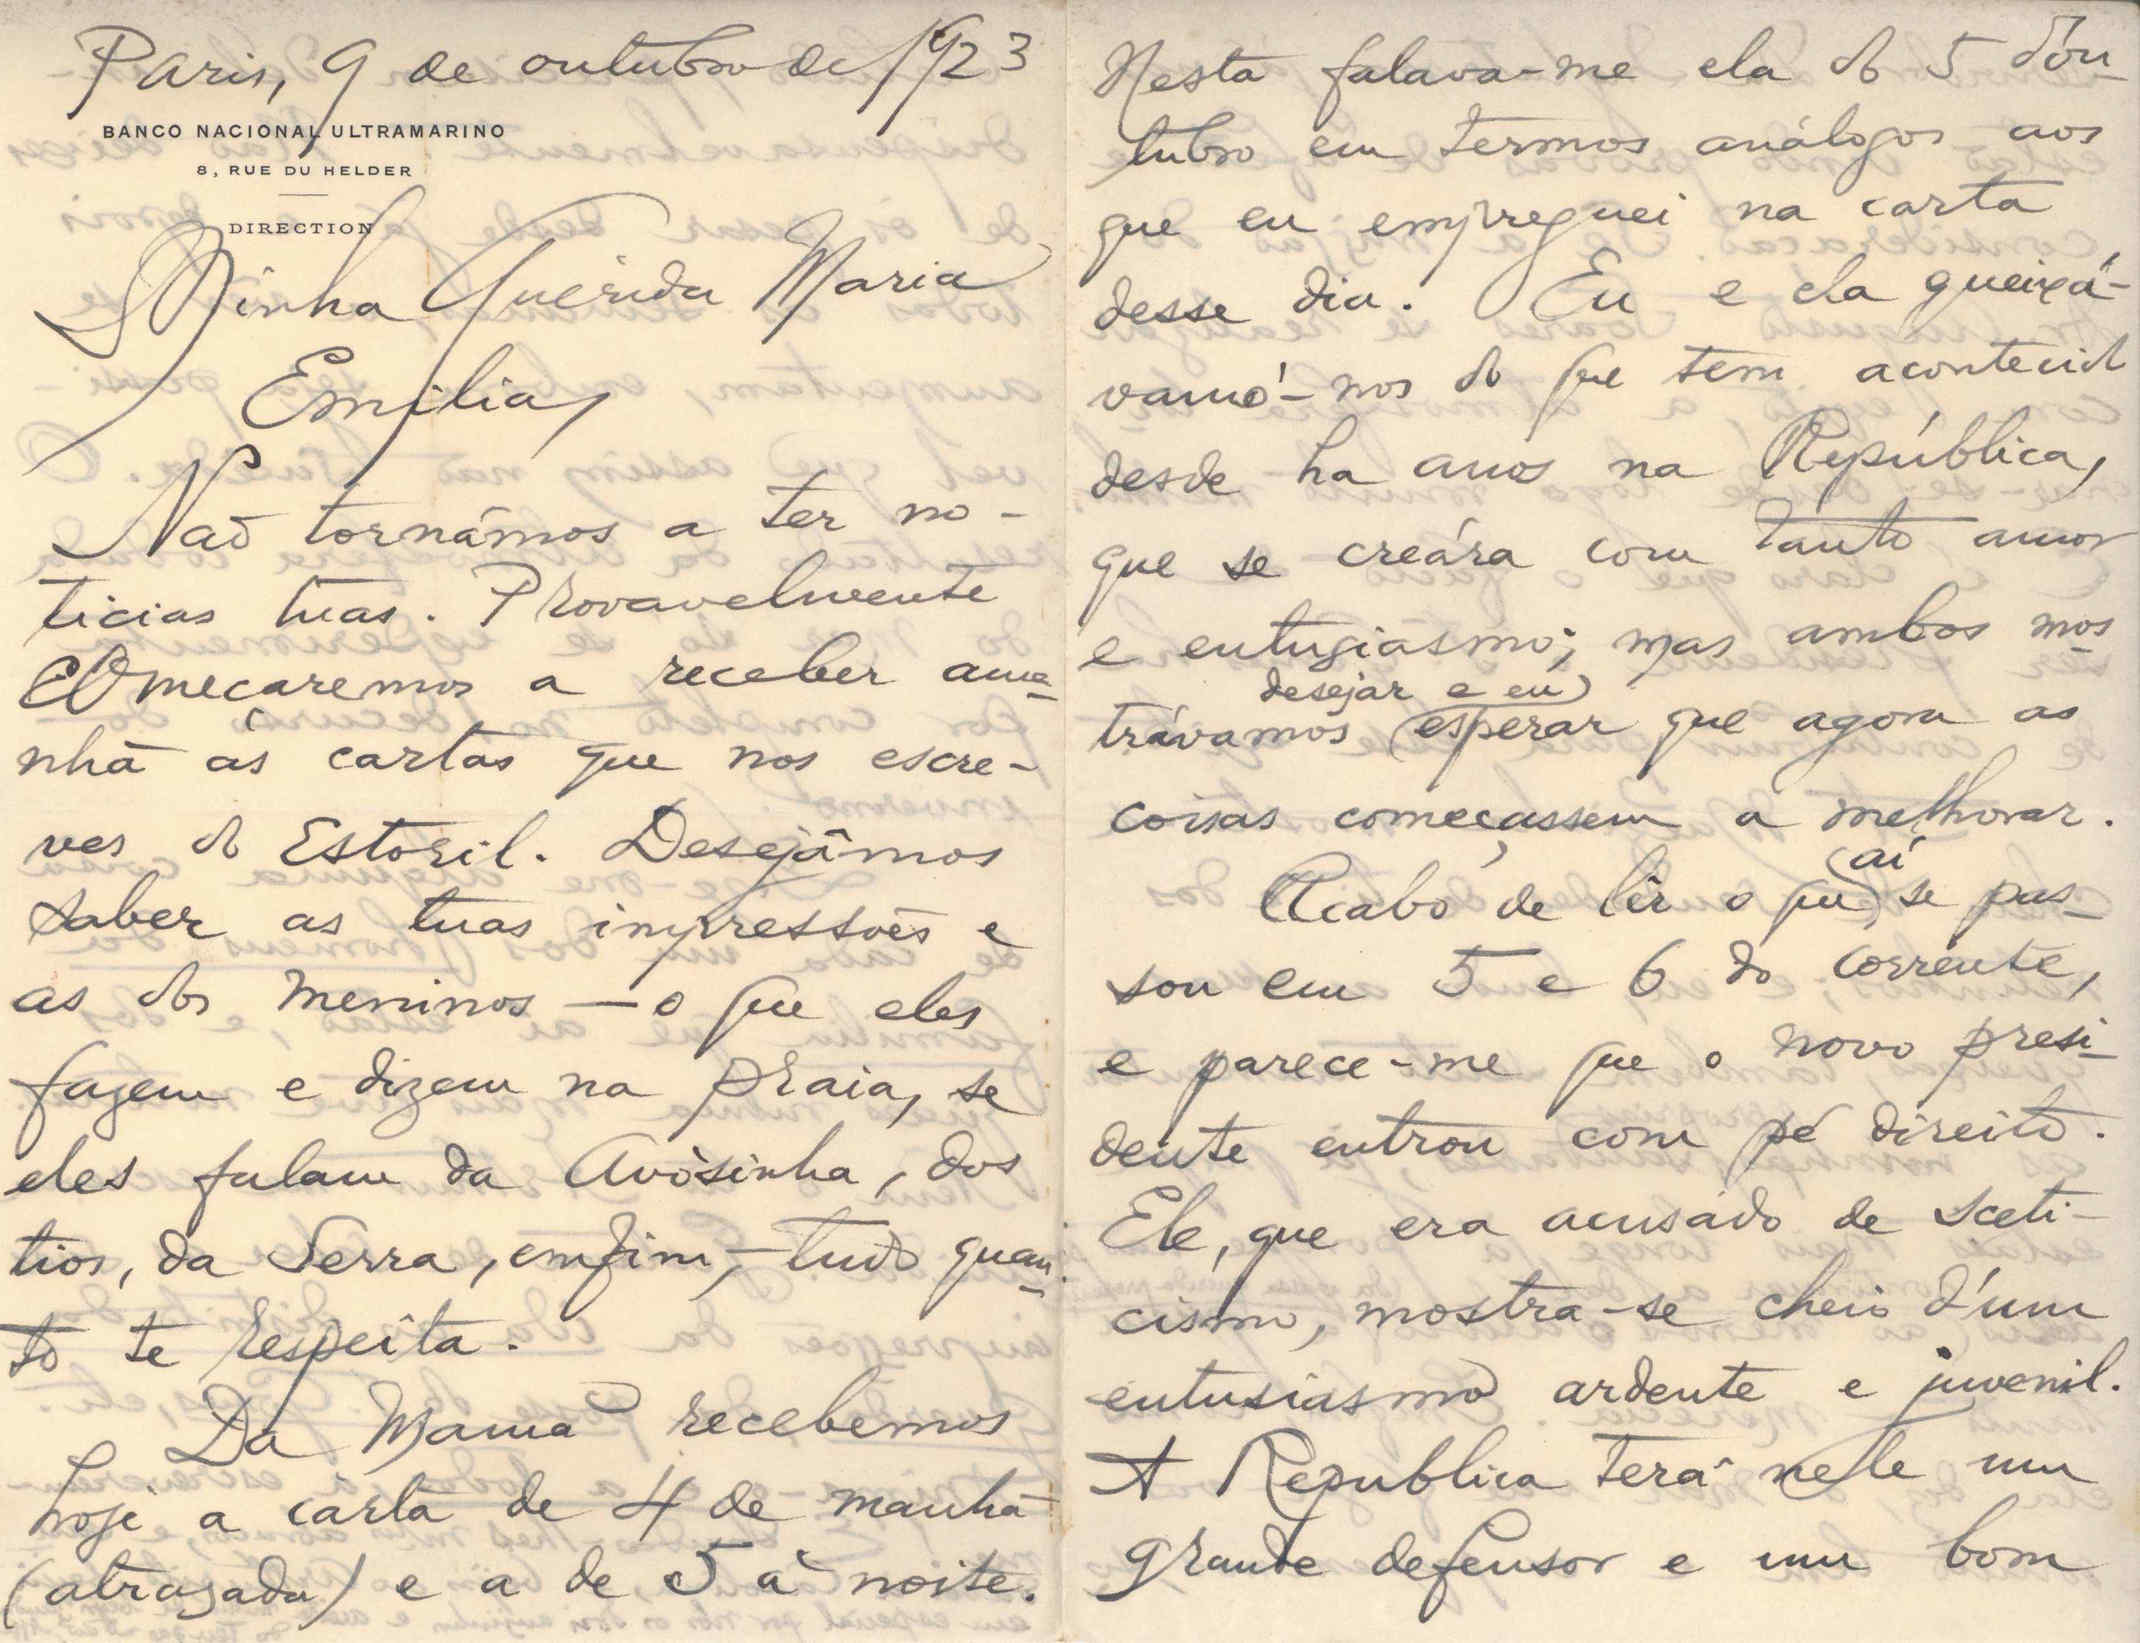 Paris, 9 de outubro de 1923
BANCO NACIONAL ULTRAMARINO
8, RUE DU HELDER
DIRECTION
Minha Querida Maria
Emilia,
Naõ tornámos a ter no-
ticias tuas. Provavelmente
começaremos a receber ama-
nhã as cartas que nos escre-
ves do Estoril. Desejâmos
saber as tuas impressoẽs e
as dos meninos — o que eles
fazem e dizem na praia, se
eles falam da Avòsinha, dos
tios, da Serra, emfim, — tudo quan-
to te respeita.
Da Mamã recebemos
hoje a carta de 4 de manhã
(atrazada) e a de 5 à noite.
Nesta falava-me ela do 5 d'ou-
tubro em termos análogos aos
que eu empreguei na carta
desse dia. Eu e ela queixá-
vamo'-nos do que tem acontecido
desde ha anos na República,
que se creára com tanto amor
e entuziasmo; mas ambos mos-
desejar e eu
trávamos esperar que agora as
coisas começassem a melhorar.
aí
Acabo de lêr o que se pas-
sou em 5 e 6 do corrente,
e parece-me que o novo presi-
dente entrou com pé direito.
Ele, que era acusado de sceti-
cismo, mostra-se cheio d'um
entusiasmo ardente e juvenil.
A Republica terá nele um
grande defensor e um bom